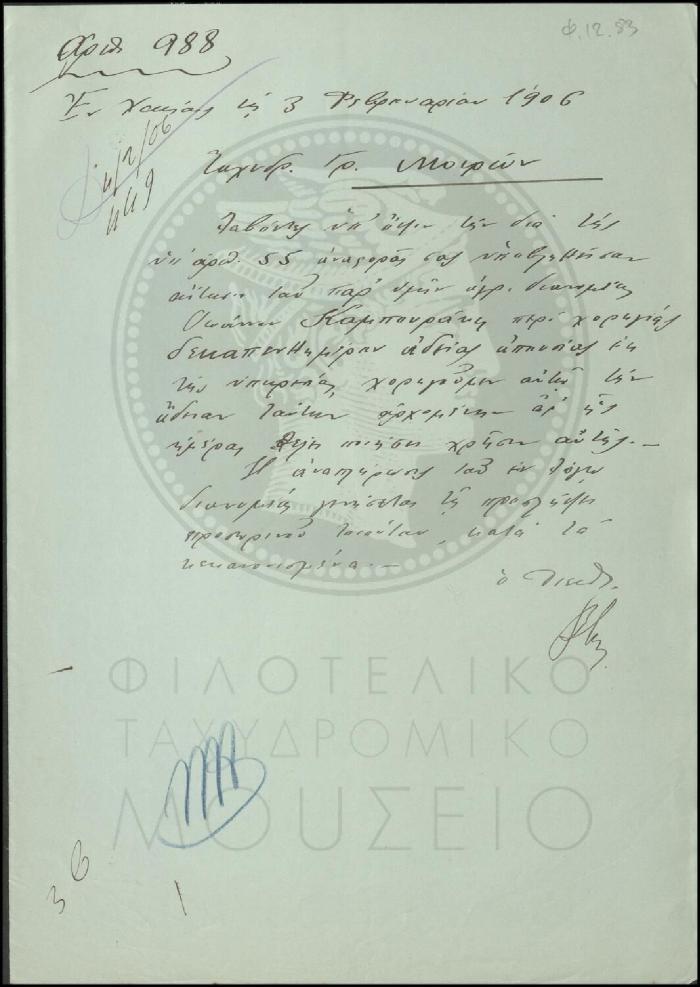 Φ.12.83
Αριθ 988
Ἐν Χανίοις τῇ 3 Φεβρουαρίου 1906
4/2/06
449
Ταχυδρ. Γρ. Μοιρῶν
Λαβόντες ὑπ' ὄψιν τὴν διὰ τῆς
ὑπ' ἀριθ. 55 ἀναφορᾶς σας ὑποβληθεῖσαν
αἴτησιν τοῦ παρ' ὑμῖν ἀγρ. διανομέως
Ἰωάννου Καμπουράκη περὶ χορηγίας
δεκαπενθημέρου ἀδείας ἀπουσίας ἐκ
τῆς ὑπηρεσίας, χορηγοῦμεν αὐτῷ τὴν
ἄδειαν ταύτην ἀρχομένην ἀφ' ἧς
ἡμέρας θέλει ποιήσει χρῆσιν αὐτῆς.—
Ἡ ἀναπλήρωσις τοῦ ἐν λόγῳ
διανομέως γενήσεται τῇ προσλήψει
προσωρινοῦ τοιούτου, κατὰ τὰ
κεκανονισμένα.—
ὁ Διευθ.
ΦΙΛΟΤΕΛΙΚΟ
ΤΑΧΥΔΡΟΜΙΚΟ
ΜΟΥΣΕΙΟ
36